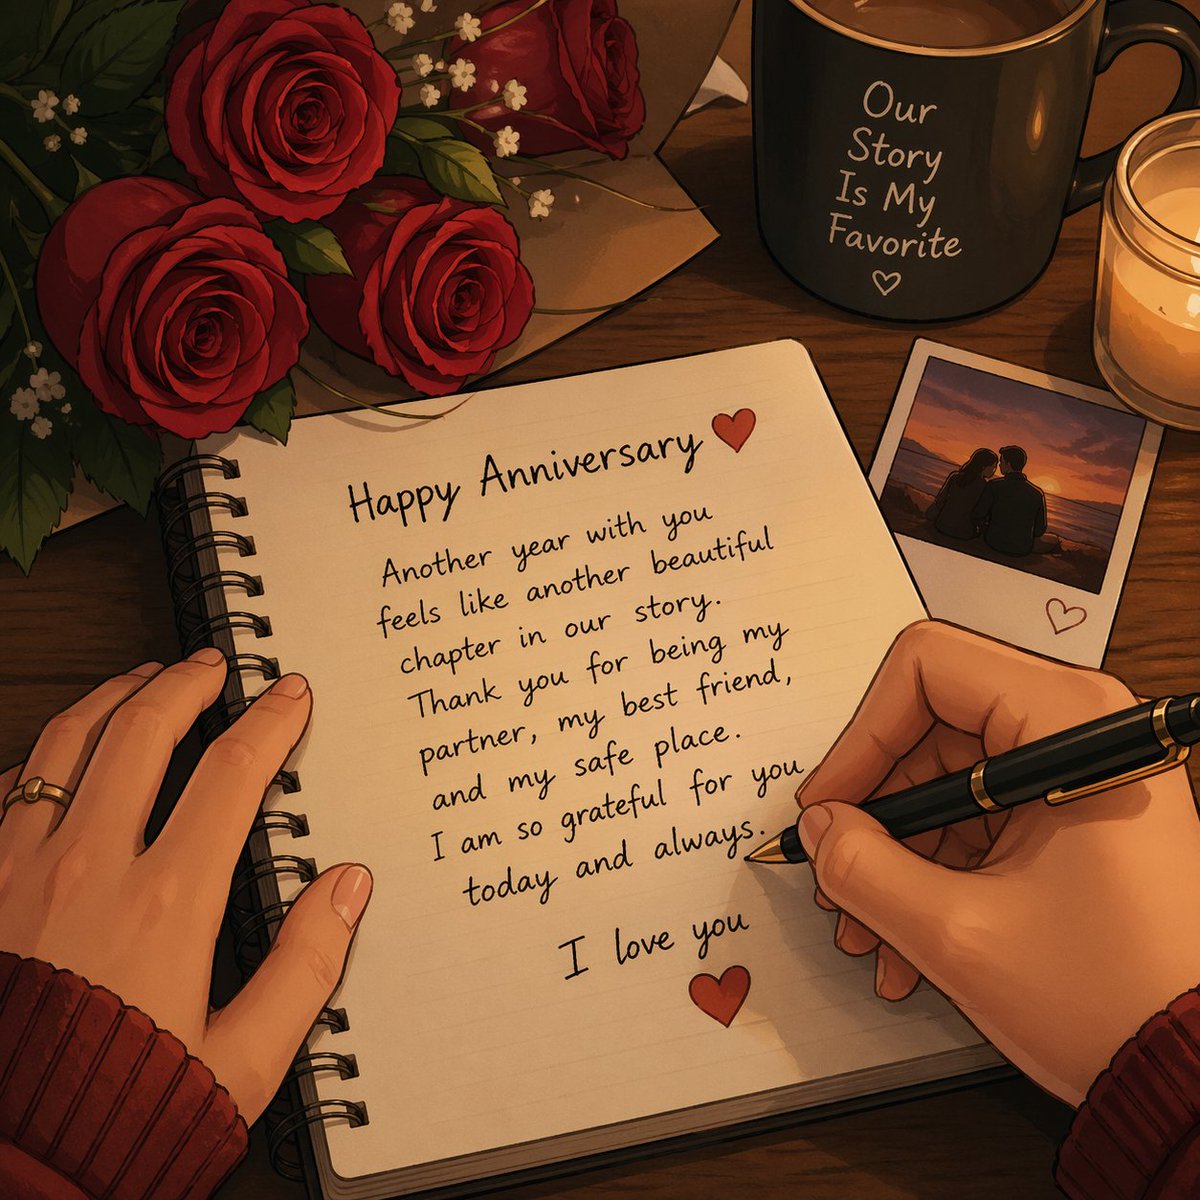 Our
Story
Is My
Favorite
Happy Anniversary
Another year with you
feels like another beautiful
chapter in our story.
Thank you for being my
partner, my best friend,
and my safe place.
I am so grateful for you
today and always.
I love you